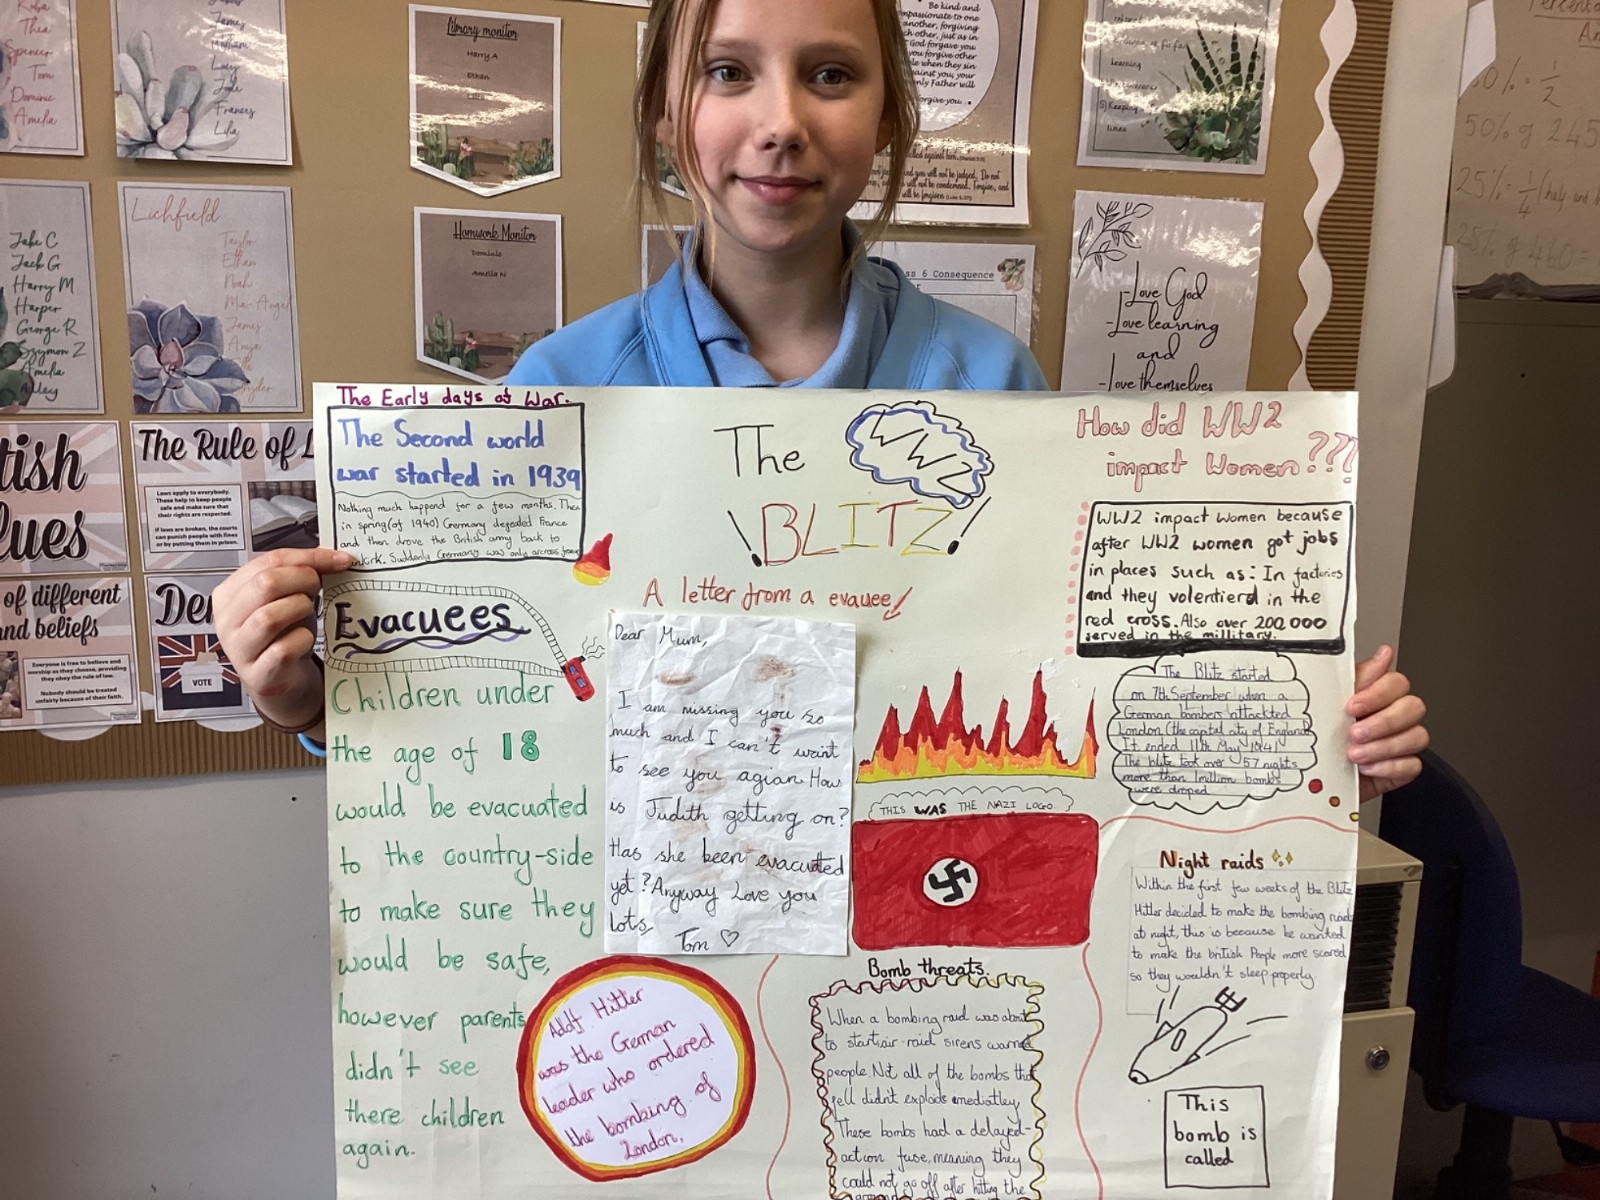 Thea
Spencer
Tom
Dominic
Amelia
James
Lucy
Jole
Frances
Lilia
Library monitor
Harry A
Ethan
Be kind and
compassionate to one
another, forgiving
each other, just as in
God forgave you
you forgive other
when they sin
against you, your
Father will
forgive you
learning
Jake C
Jack G
Harry M
Harper
George R
Szymon Z
Amelia
Lichfield
Taylor
Ethan
Noah
James
Homework Monitor
Dominic
Amelia N
ss 6 Consequence
-Love God
-Love learning
and
-Love themselves
50% of 245
25% = 1/4
25% of 460 =
The Rule of L
Laws apply to everybody.
These help to keep people
safe and make sure that
their rights are respected.
If laws are broken, the courts
can punish people with fines
or by putting them in prison.
tish
lues
of different
nd beliefs
Everyone is free to believe and
worship as they choose, providing
they obey the rule of law.
Nobody should be treated
unfairly because of their faith.
VOTE
The Early days of War.
The Second world
war started in 1939
Nothing much happend for a few months. Then
in spring(of 1940) Germany defeaded France
and then drove the British army back to
unkirk. Suddenly Germany was only arcross from
Evacuees
Children under
the age of 18
would be evacuated
to the country-side
to make sure they
would be safe,
however parents
didn't see
there children
again.
The WW2
!BLITZ!
A letter from a evauee!
Dear Mum,
I am missing you so
much and I can't waint
to see you agian. How
is Judith getting on?
Has she been evacuated
yet? Anyway Love you
lots,
Tom ♡
Adolf Hitler
was the German
leader who ordered
the bombing of
London.
THIS WAS THE NAZI LOGO.
Bomb threats.
When a bombing raid was about
to start air-raid sirens warned
people. Not all of the bombs that
fell didn't explode emediatley,
These bombs had a delayed-
action fuse, meaning they
could not go off after hitting the
ground
How did WW2
impact Women???
WW2 impact women because
after WW2 women got jobs
in places such as: In factories
and they volentierd in the
red cross. Also over 200,000
served in the millitary.
The Blitz started
on 7th September when a
German bombers attackted
London (the capital city of England)
It ended 11th May 1941
The blitz took over 57 nights
more than 1million bombs
were droped.
Night raids
Within the first few weeks of the Blitz
Hitler decided to make the bombing raids
at night, this is because he wanted
to make the british People more scared
so they wouldn't sleep properly
This
bomb is
called